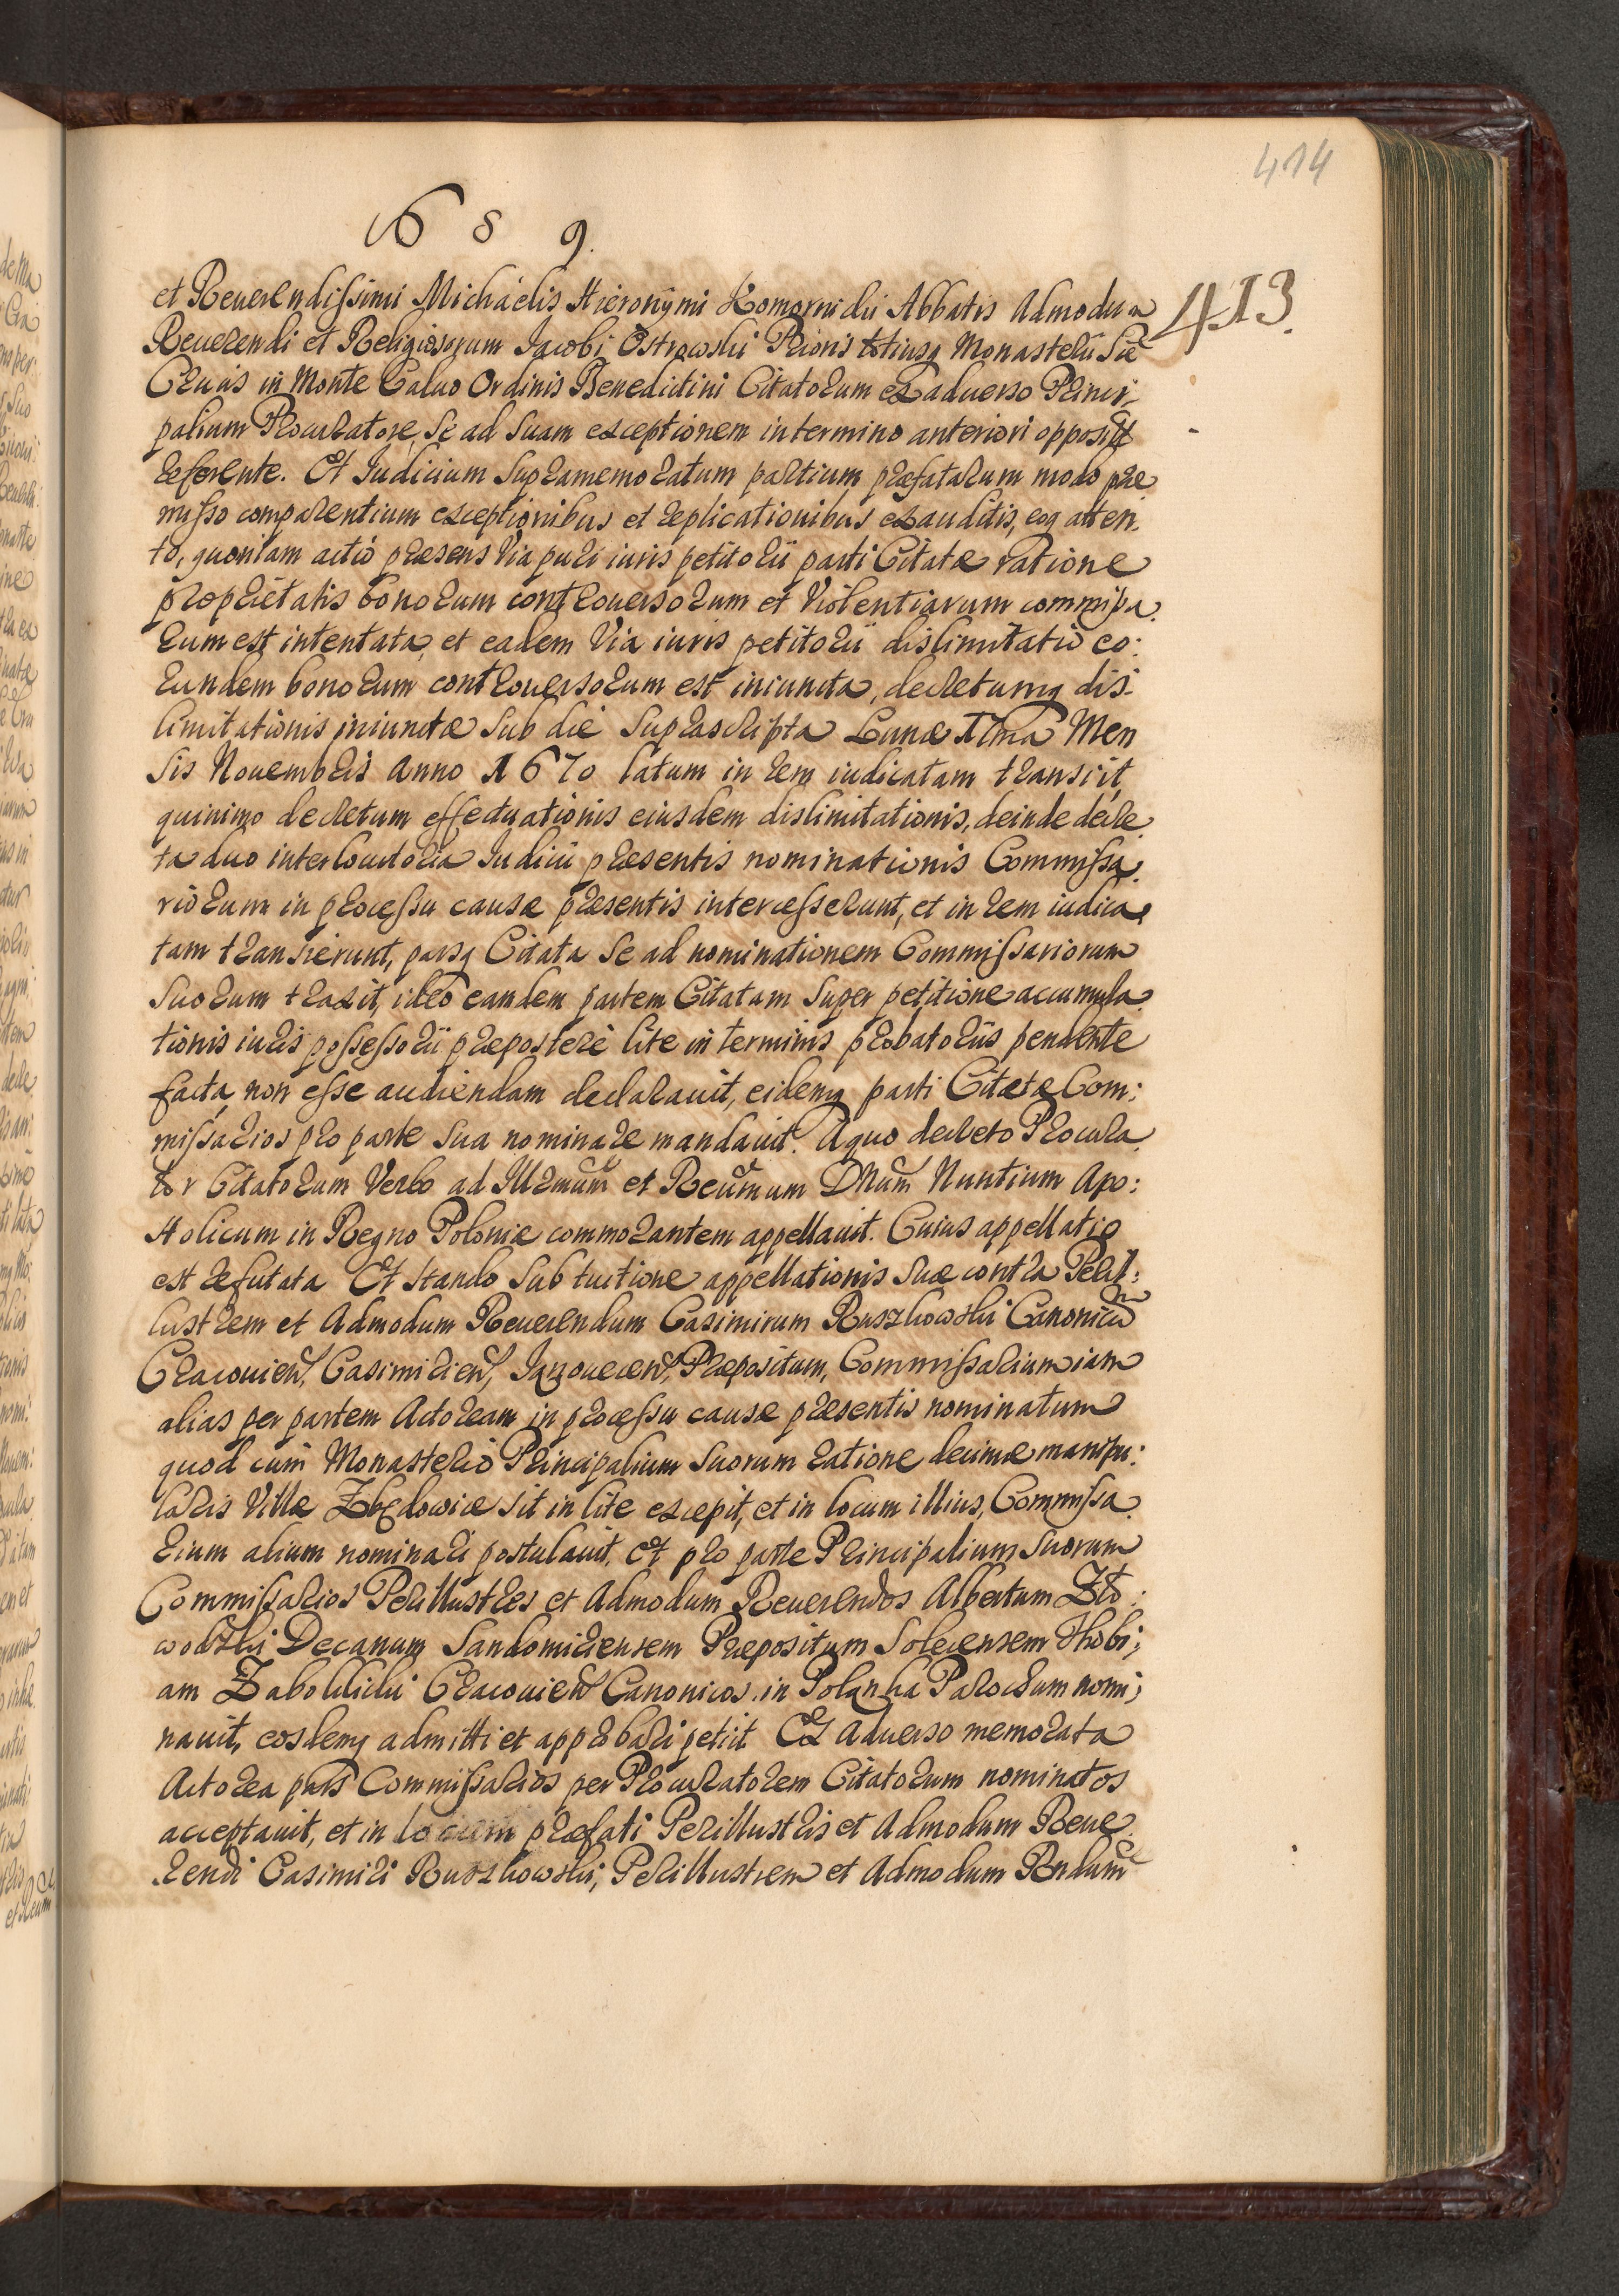 414
1689.
413.
et Reuerendissimi Michaelis Hieronymi Komornicki Abbatis Admodum
Reuerendi et Religiosorum Iacobi Ostrowski Prioris totiusq Monasterii Stae
Crucis in Monte Caluo Ordinis Benedictini Citatorum ex aduerso Princi-
palium Procuratore, se ad suam exceptionem in termino anteriori opposit
referente. Et Iudicium supramemoratum partium præfatarum modo præ
misso comparentium exceptionibus et replicationibus exauditis, eoq atten
to, quoniam actio præsens via puri iuris petitorii parti Citatæ ratione
proprietatis bonorum controuersorum et Violentiarum commissa.
rum est intentata, et eadem Via iuris petitorii dislimitatio eo:
rundem bonorum controuersorum est iniuncta, decretumq dis-
limitationis iniunctæ sub die suprascripta Lunæ Mensis Men
sis Nouembris Anno 1670 latum in rem iudicatam transiit,
quinimo decretum effectuationis eiusdem dislimitationis, deinde decre
ta duo interlocutoria Iudicii præsentis nominationis Commissa.
riorum in processu causæ præsentis intercesserunt, et in rem iudica
tam transierunt, parsq Citata se ad nominationem Commissariorum
suorum traxit, ideo eandem partem Citatam super petitione accumula
tionis iuris possessorii præpostere lite in terminis probatoriis pendente
facta, non esse audiendam declarauit, eidemq parti Citatæ Com:
missarios pro parte sua nominare mandauit. A quo decreto Procura
tor Citatorum Verbo ad Illrmum et Reuermum Dnum Nuntium Apo:
stolicum in Regno Poloniæ commorantem appellauit. Cuius appellatio
est refutata Et stando sub tuitione appellationis suæ contra Peril:
lustrem et Admodum Reuerendum Casimirum Ruszkowski Canonicum
Cracouien, Casimirien, Præpositum, Commissarium iam
alias per partem Actoream in processu causæ præsentis nominatum
quod cum Monasterio Principalium suorum ratione decimæ manipu:
laris Villæ Zbędowice sit in lite excepit, et in locum illius, Commissa.
rium alium nominari postulauit, et pro parte Principalium suorum
Commissarios Perillustres et Admodum Reuerendos Albertum
Decanum Sandomiriensem Præpositum Solecensem Thobi;
am Cracouien Canonicos, in Polanka Parochum nomi;
nauit, eosdemq admitti et approbari petiit Ex Aduerso memorata
Actorea pars Commissarios per Procuratorem Citatorum nominatos
acceptauit, et in locum præfati Perillustris et Admodum Reue.
rendi Casimiri Ruszkowski, Perillustrem et Admodum Rndum